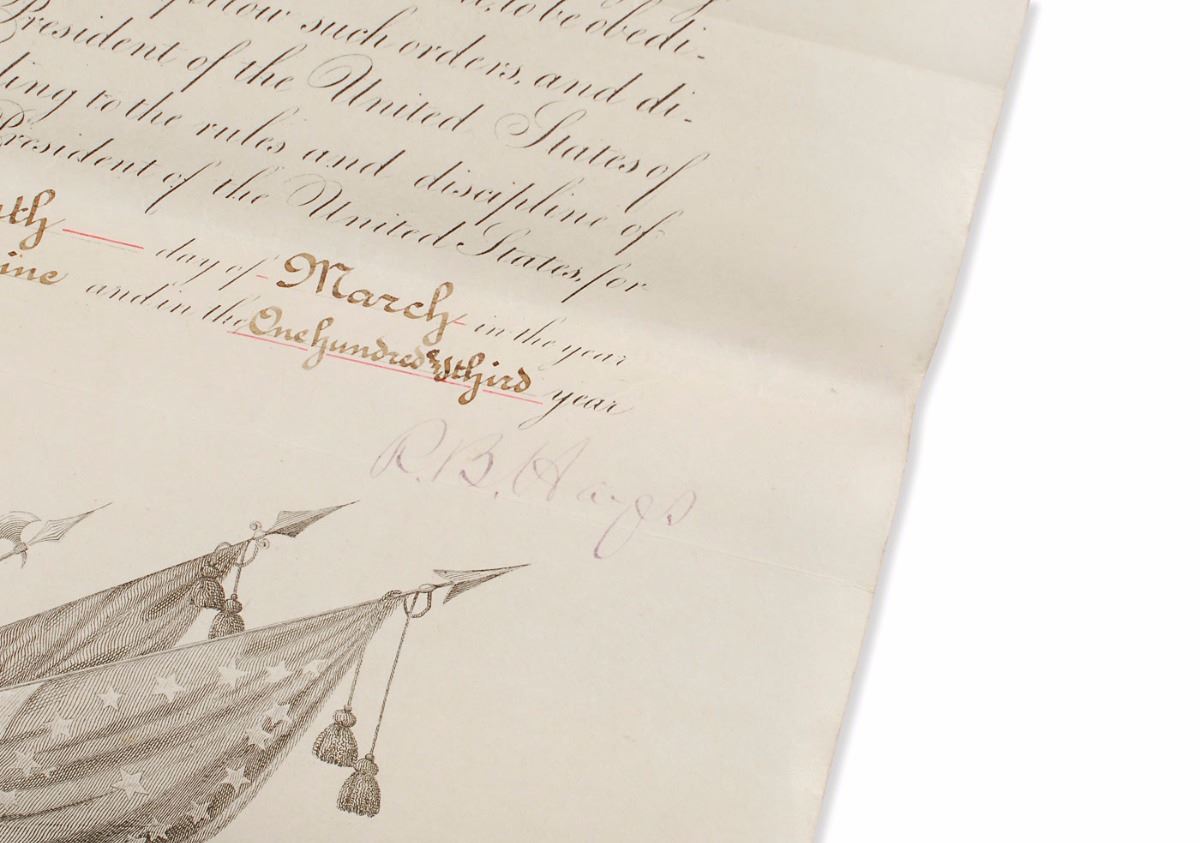 to be obedi-
follow such orders, and di-
President of the United States of
ding to the rules and discipline of
President of the United States, for
th day of March in the year
ine and in the One hundred & third year
R. B. Hayes